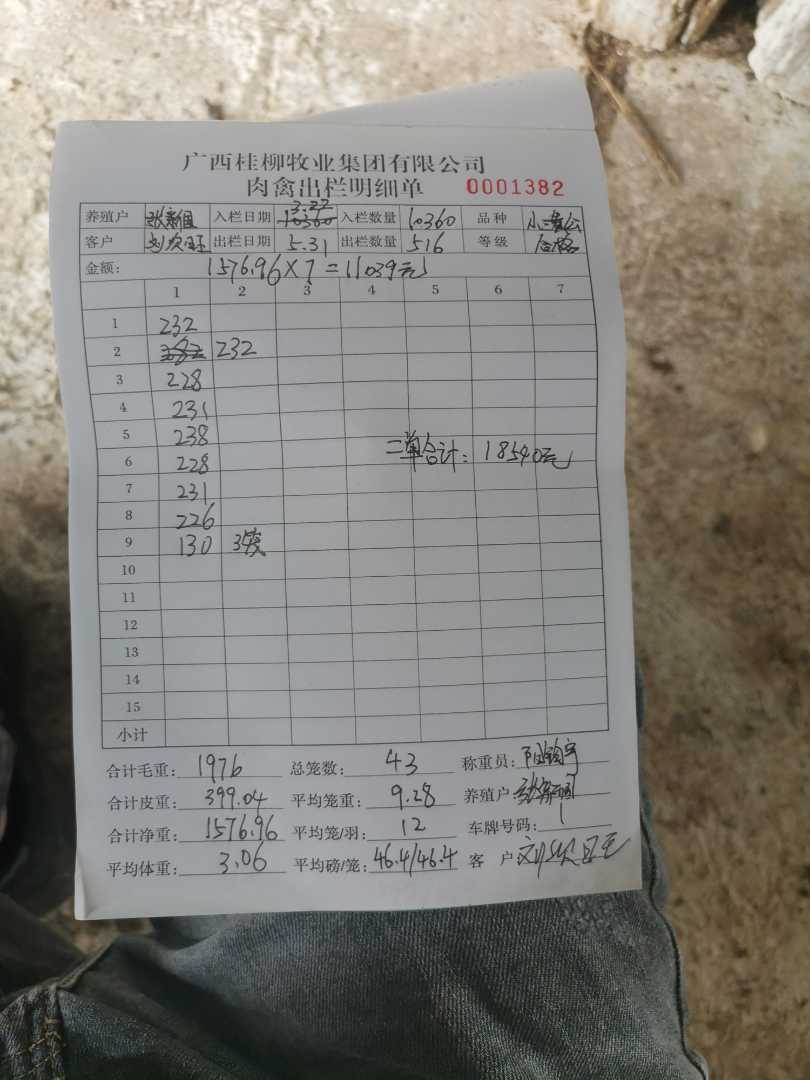 广西桂柳牧业集团有限公司
肉禽出栏明细单 0001382
养殖户 入栏日期 3.22 入栏数量 10360 品种
客户 出栏日期 5.31 出栏数量 516 等级 合格
金额: 1576.96×7=11039元
1 2 3 4 5 6 7
1 232
2 232
3 228
4 231
5 238
6 228 二单合计: 18540元
7 231
8 226
9 130 3笼
10
11
12
13
14
15
小计
合计毛重: 1976 总笼数: 43 称重员:
合计皮重: 399.04 平均笼重: 9.28 养殖户:
合计净重: 1576.96 平均笼/羽: 12 车牌号码:
平均体重: 3.06 平均磅/笼: 46.4/46.4 客户